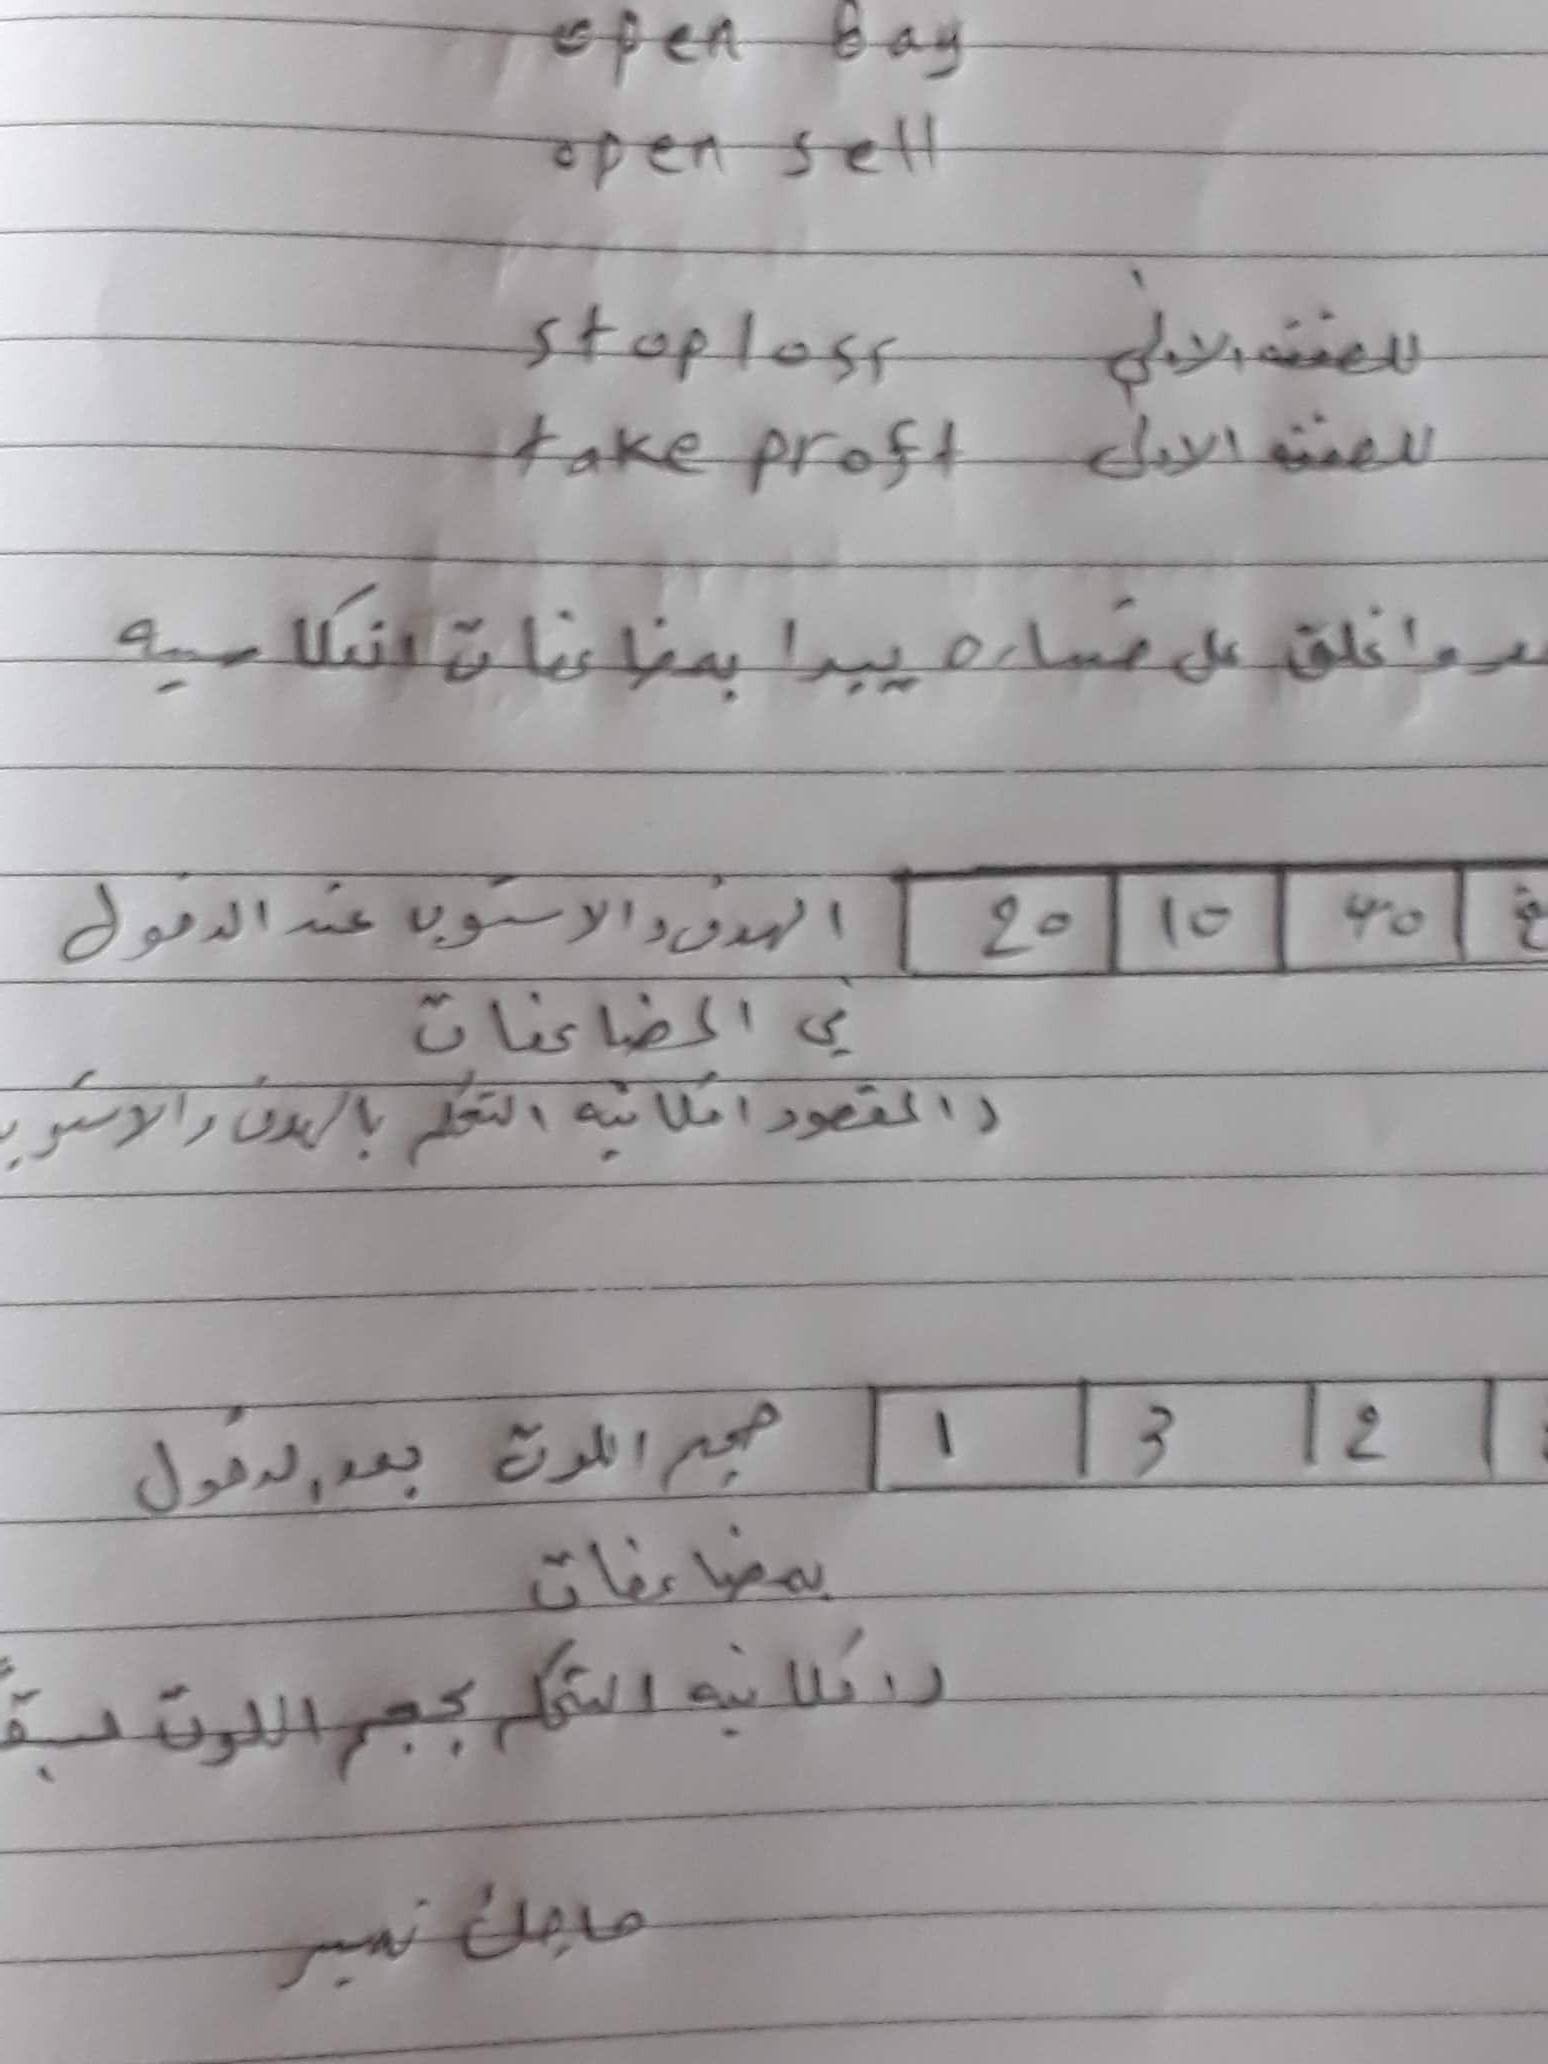 open bay
open sell
stoploss للصفقه الاولى
take proft للصفقه الاولى
اغلق على خساره يبدا بمضاعفات انعكاسيه
40 10 20 الهدف والاستوب عند الدخول
في المضاعفات
والمقصود امكانيه التحكم بالهدف والاستوب
2 3 1 حجم اللوت بعد الدخول
بمضاعفات
وامكانيه التحكم بحجم اللوت مسبقاً
ماجك نمبر